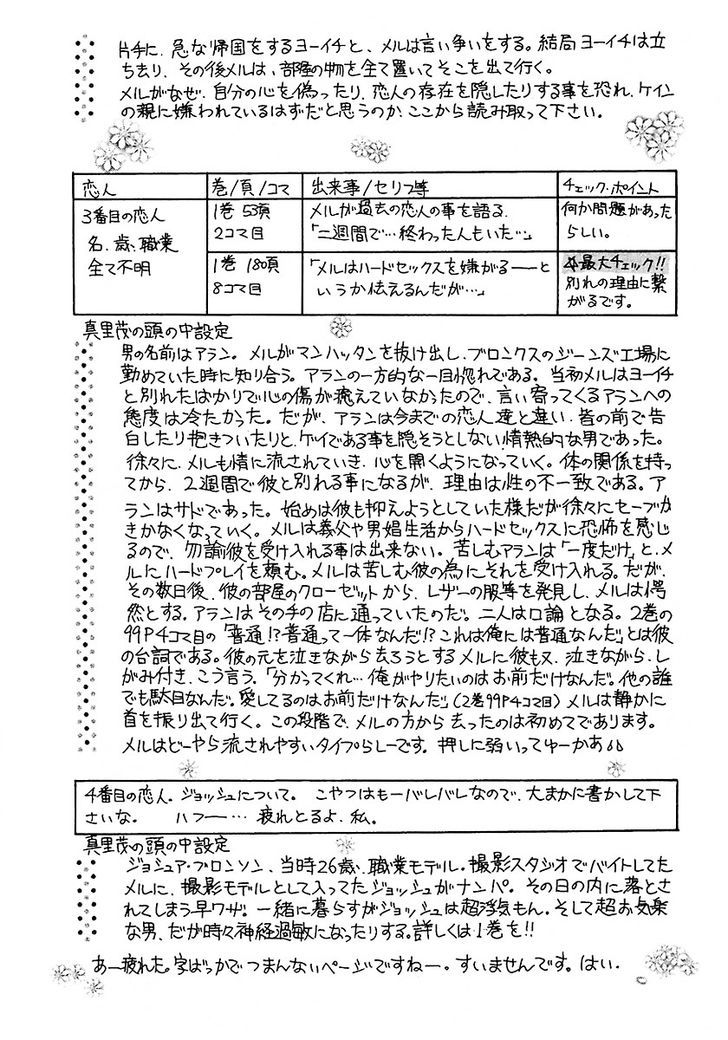 片手に、急な帰国をするヨーイチと、メルは言い争いをする。結局ヨーイチは立
ち去り、その後メルは、部屋の物を全て置いてそこを出て行く。
メルがなぜ、自分の心を偽ったり、恋人の存在を隠したりする事を恐れ、ケイン
の親に嫌われているはずだと思うのか、ここから読み取って下さい。
恋人
巻/頁/コマ
出来事/セリフ等
チェック・ポイント
3番目の恋人
名、歳、職業
全て不明
1巻 53頁
2コマ目
メルが過去の恋人の事を語る。
「二週間で…終わった人もいた…」
何か問題があった
らしい。
1巻 180頁
8コマ目
「メルはハードセックスを嫌がる──と
いうか怯えるんだが…」
最大チェック!!
別れの理由に繋
がるです。
真里茂の頭の中設定
男の名前はアラン。メルがマンハッタンを抜け出し、ブロンクスのジーンズ工場に
勤めていた時に知り合う。アランの一方的な一目惚れである。当初メルはヨーイチ
と別れたばかりで心の傷が癒えていなかったので、言い寄ってくるアランへの
態度は冷たかった。だが、アランは今までの恋人達と違い、皆の前で告
白したり抱きついたりと、ゲイである事を隠そうとしない情熱的な男であった。
徐々に、メルも情に流されていき、心を開くようになっていく。体の関係を持っ
てから、2週間で彼と別れる事になるが、理由は性の不一致である。ア
ランはサドであった。始めは彼も抑えようとしていた様だが徐々にセーブが
きかなくなっていく。メルは義父や男娼生活からハードセックスに恐怖を感じ
るので、勿論彼を受け入れる事は出来ない。苦しむアランは「一度だけ」と、メ
ルにハードプレイを頼む。メルは苦しむ彼の為にそれを受け入れる。だが、
その数日後、彼の部屋のクローゼットから、レザーの服等を発見し、メルは愕
然とする。アランはその手の店に通っていたのだ。二人は口論となる。2巻の
99P4コマ目の「普通!?普通って一体なんだ!?これは俺には普通なんだ」とは彼
の台詞である。彼の元を泣きながら去ろうとするメルに彼も又、泣きながら、し
がみ付き、こう言う。「分かってくれ…俺がやりたいのはお前だけなんだ。他の誰
でも駄目なんだ。愛してるのはお前だけなんだ」(2巻99P4コマ目)メルは静かに
首を振り出て行く。この段階で、メルの方から去ったのは初めてであります。
メルはどーやら流されやすいタイプらしーです。押しに弱いってゆーかあ。。
4番目の恋人。ジョッシュについて。 こやつはもーバレバレなので、大まかに書かして下
さいな。 ハフー… 疲れとるよ、私。
真里茂の頭の中設定
ジョシュア・ブロンソン、当時26歳、職業モデル。撮影スタジオでバイトしてた
メルに、撮影モデルとして入ってたジョッシュがナンパ。その日の内に落とさ
れてしまう早ワザ。一緒に暮らすがジョッシュは超浮気もん。そして超お気楽
な男、だが時々神経過敏になったりする。詳しくは1巻を!!
あー疲れた。字ばっかでつまんないページですねー。すいませんです。はい。